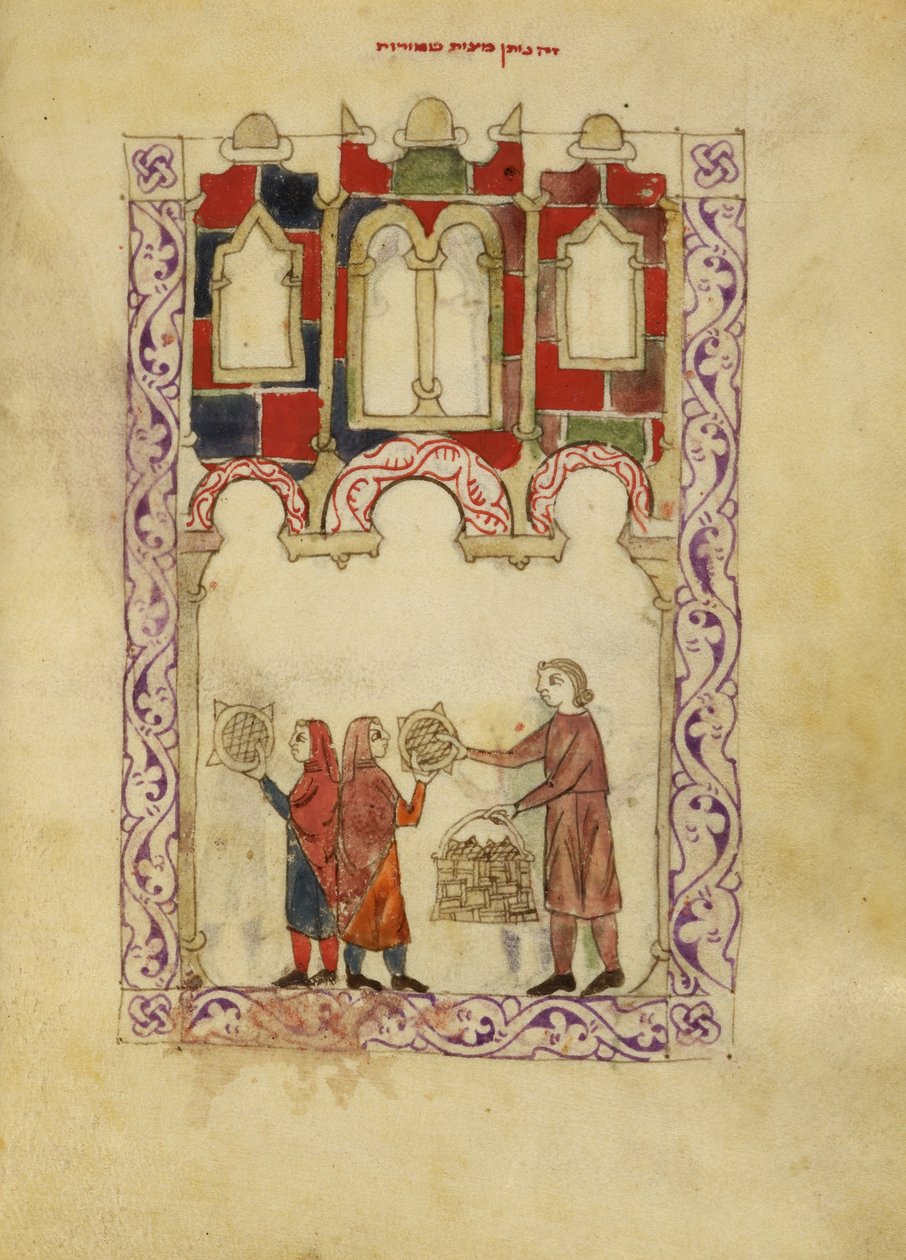 זה נותן מצות שמורות